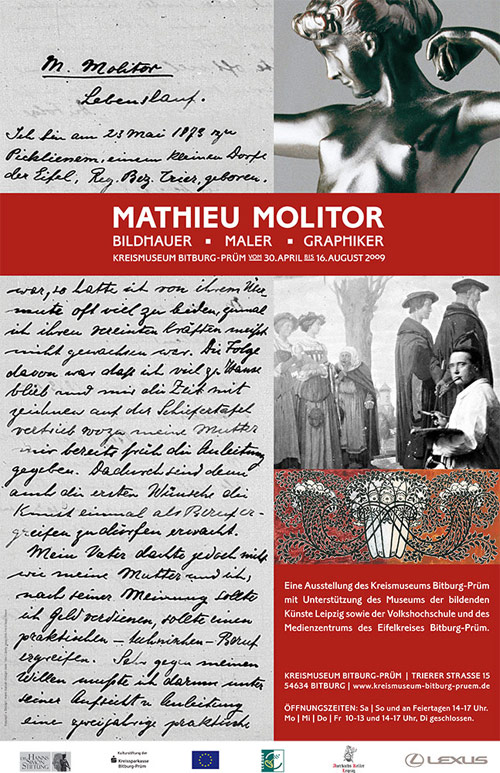 M. Molitor
Lebenslauf.
Ich bin am 23 Mai 1873 zu
Pickliessem, einem kleinen Dorfe
der Eifel, Reg. Bez. Trier, geboren.
MATHIEU MOLITOR
BILDHAUER ▪ MALER ▪ GRAPHIKER
KREISMUSEUM BITBURG-PRÜM VOM 30. APRIL BIS 16. AUGUST 2009
war, so hatte ich von ihrem
mute oft viel zu leiden, zumal
ich ihren vereinten Kräften meist
nicht gewachsen war. Die Folge
davon war daß ich viel zu Hause
blieb und mir die Zeit mit
zeichnen auf der Schiefertafel
vertrieb wozu meine Mutter
mir bereits früh die Anleitung
gegeben. Dadurch sind denn
auch die ersten Wünsche die
Kunst einmal als Beruf er-
greifen zu dürfen erwacht.
Mein Vater dachte jedoch nicht
wie meine Mutter und ich,
nach seiner Meinung sollte
ich Geld verdienen, sollte einen
praktischen – technischen – Beruf
ergreifen. Sehr gegen meinen
Willen mußte ich darum unter
seiner Aufsicht u Anleitung
eine zweijährige praktische
Eine Ausstellung des Kreismuseums Bitburg-Prüm
mit Unterstützung des Museums der bildenden
Künste Leipzig sowie der Volkshochschule und des
Medienzentrums des Eifelkreises Bitburg-Prüm.
KREISMUSEUM BITBURG-PRÜM | TRIERER STRASSE 15
54634 BITBURG | www.kreismuseum-bitburg-pruem.de
ÖFFNUNGSZEITEN: Sa | So und an Feiertagen 14-17 Uhr.
Mo | Mi | Do | Fr 10-13 und 14-17 Uhr, Di geschlossen.
DR. HANNS
SIMON
STIFTUNG
Kulturstiftung der
Kreissparkasse
Bitburg-Prüm
Auerbachs Keller
Leipzig
LEXUS